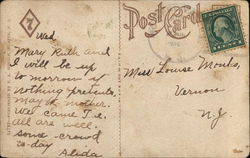 7
Post Card
Wed
Mary Ruth and
I will be up
to morrow if
nothing prevents,
may be mother.
We came T.
all are well.
some crowd
to-day
Alida
Miss Louise Monks,
Vernon
N.J.